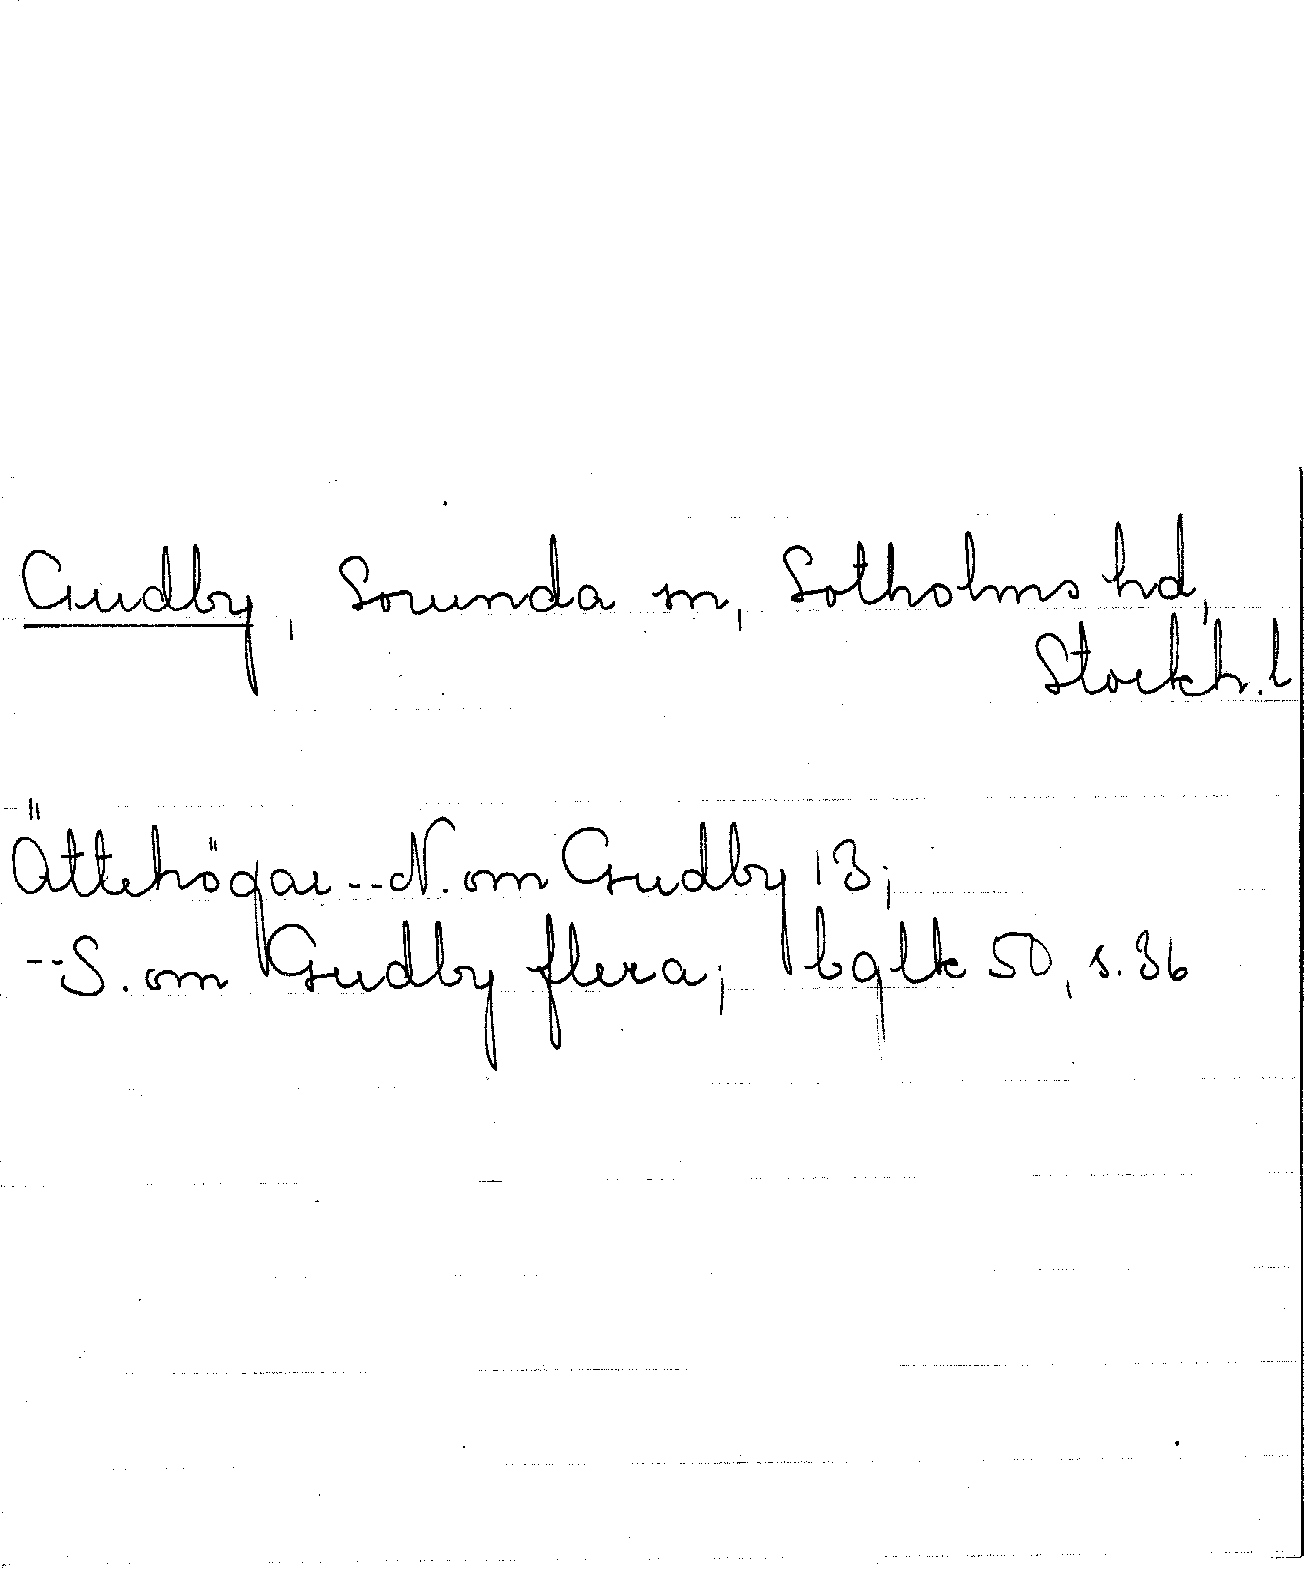 Gudby, Sorunda sn, Sotholms hd,
Stockh. l
Ättehögar -- N. om Gudby 13;
-- S. om Gudby flera; bglk 50, s. 36